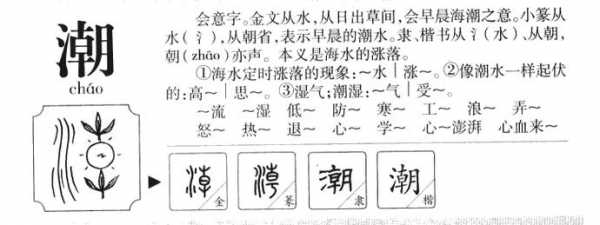 潮
cháo
会意字。金文从水，从日出草间，会早晨海潮之意。小篆从
水（氵），从朝省，表示早晨的潮水。隶、楷书从氵（水）、从朝，
朝（zhāo）亦声。本义是海水的涨落。
①海水定时涨落的现象：～水｜涨～。②像潮水一样起伏
的：高～｜思～。③湿气；潮湿：～气｜受～。
～流 ～湿 低～ 防～ 寒～ 工～ 浪～ 弄～
怒～ 热～ 退～ 心～ 学～ 心～澎湃 心血来～
金 篆 潮 隶 潮 楷